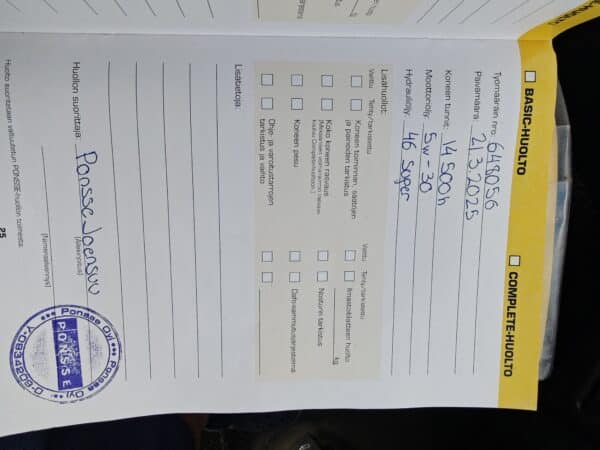 BASIC-HUOLTO
COMPLETE-HUOLTO
Työmääräin nro: 648056
Päivämäärä: 21.3.2025
Koneen tunnit: 14 500 h
Moottoriöljy: 5w-30
Hydrauliöljy: 46 super
Lisähuollot:
Valittu Tehty/tarkistettu
Koneen toiminnan, säätöjen
ja paineiden tarkistus
Koko koneen rasvaus
Koneen pesu
Ohje- ja varoitustarrojen
tarkistus ja vaihto
Valittu Tehty/tarkistettu
Ilmastointilaitteen huolto
kg
Nosturin tarkistus
Dafo-sammutusjärjestelmä
Lisätietoja:
Huollon suorittaja: Ponsse Joensuu
(Allekirjoitus)
(Nimenselvennys)
Ponsse Oyj
PONSSE
Ponsse Oyj
Huolto suoritetaan valtuutetun PONSSE-huollon toimesta
25